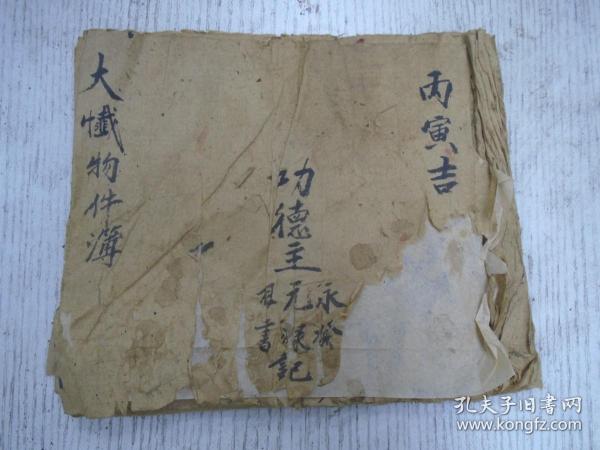 丙寅吉
功德主
永
元
記
書
大懺物件簿
孔夫子旧书网
www.kongfz.com